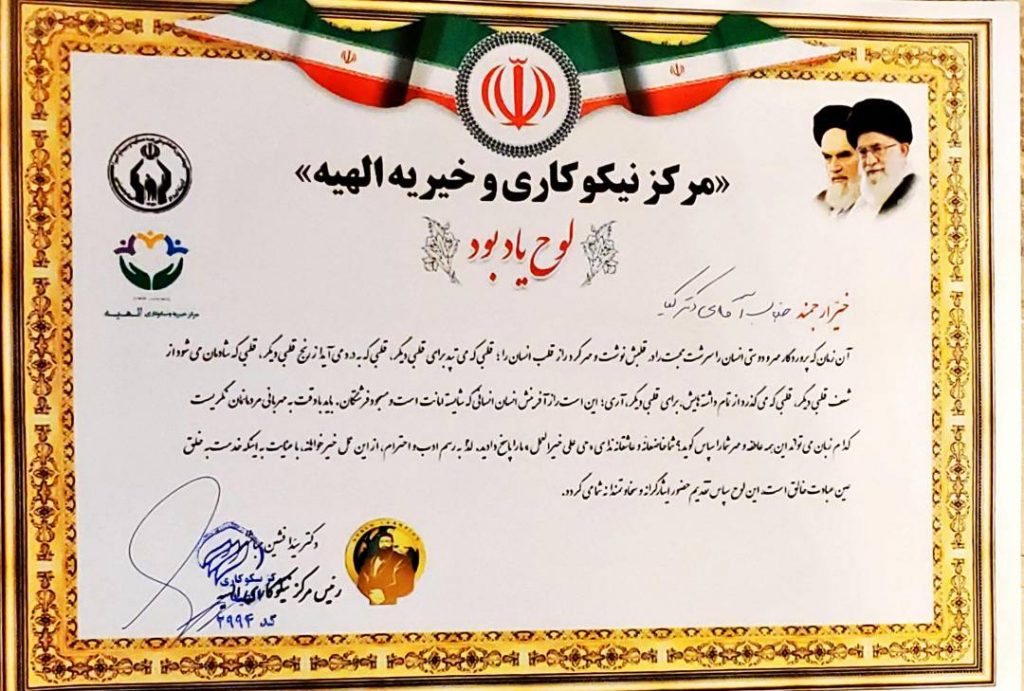 «مرکز نیکوکاری و خیریه الهیه»
لوح یادبود
خیّر ارجمند جناب آقای دکتر کیا
آن زمان که پروردگار مهر و دوستی انسان را سرشت محبت را در قلبش نوشت و مهر کرد راز قلب انسان را؛ قلبی که می تپد برای قلبی دیگر، قلبی که به درد می آید از رنج قلبی دیگر، قلبی که شادمان می شود از
شعف قلبی دیگر، قلبی که می گذرد از تمام داشته هایش برای قلبی دیگر، آری؛ این است راز آفرینش انسان انسانی که شایسته امانت است و مسجود فرشتگان. باید با دقت به مهربانی مردمانمان نگریست
کدام زبان می تواند این همه عاطفه و مهر شما را سپاس گوید؟ شما خاضعانه و عاشقانه ندای «حی علی خیرالعمل» ما را پاسخ دادید. لذا به رسم ادب و احترام، از این عمل خیرخواهانه، با عنایت به اینکه خدمت به خلق
عین عبادت خالق است این لوح سپاس تقدیم حضور ایثارگرانه و سخاوتمندانه شما می گردد.
مرکز خیریه و نیکوکاری الهیه
دکتر سید افشین
رئیس مرکز نیکوکاری الهیه
مرکز نیکوکاری
کد ۲۹۹۴